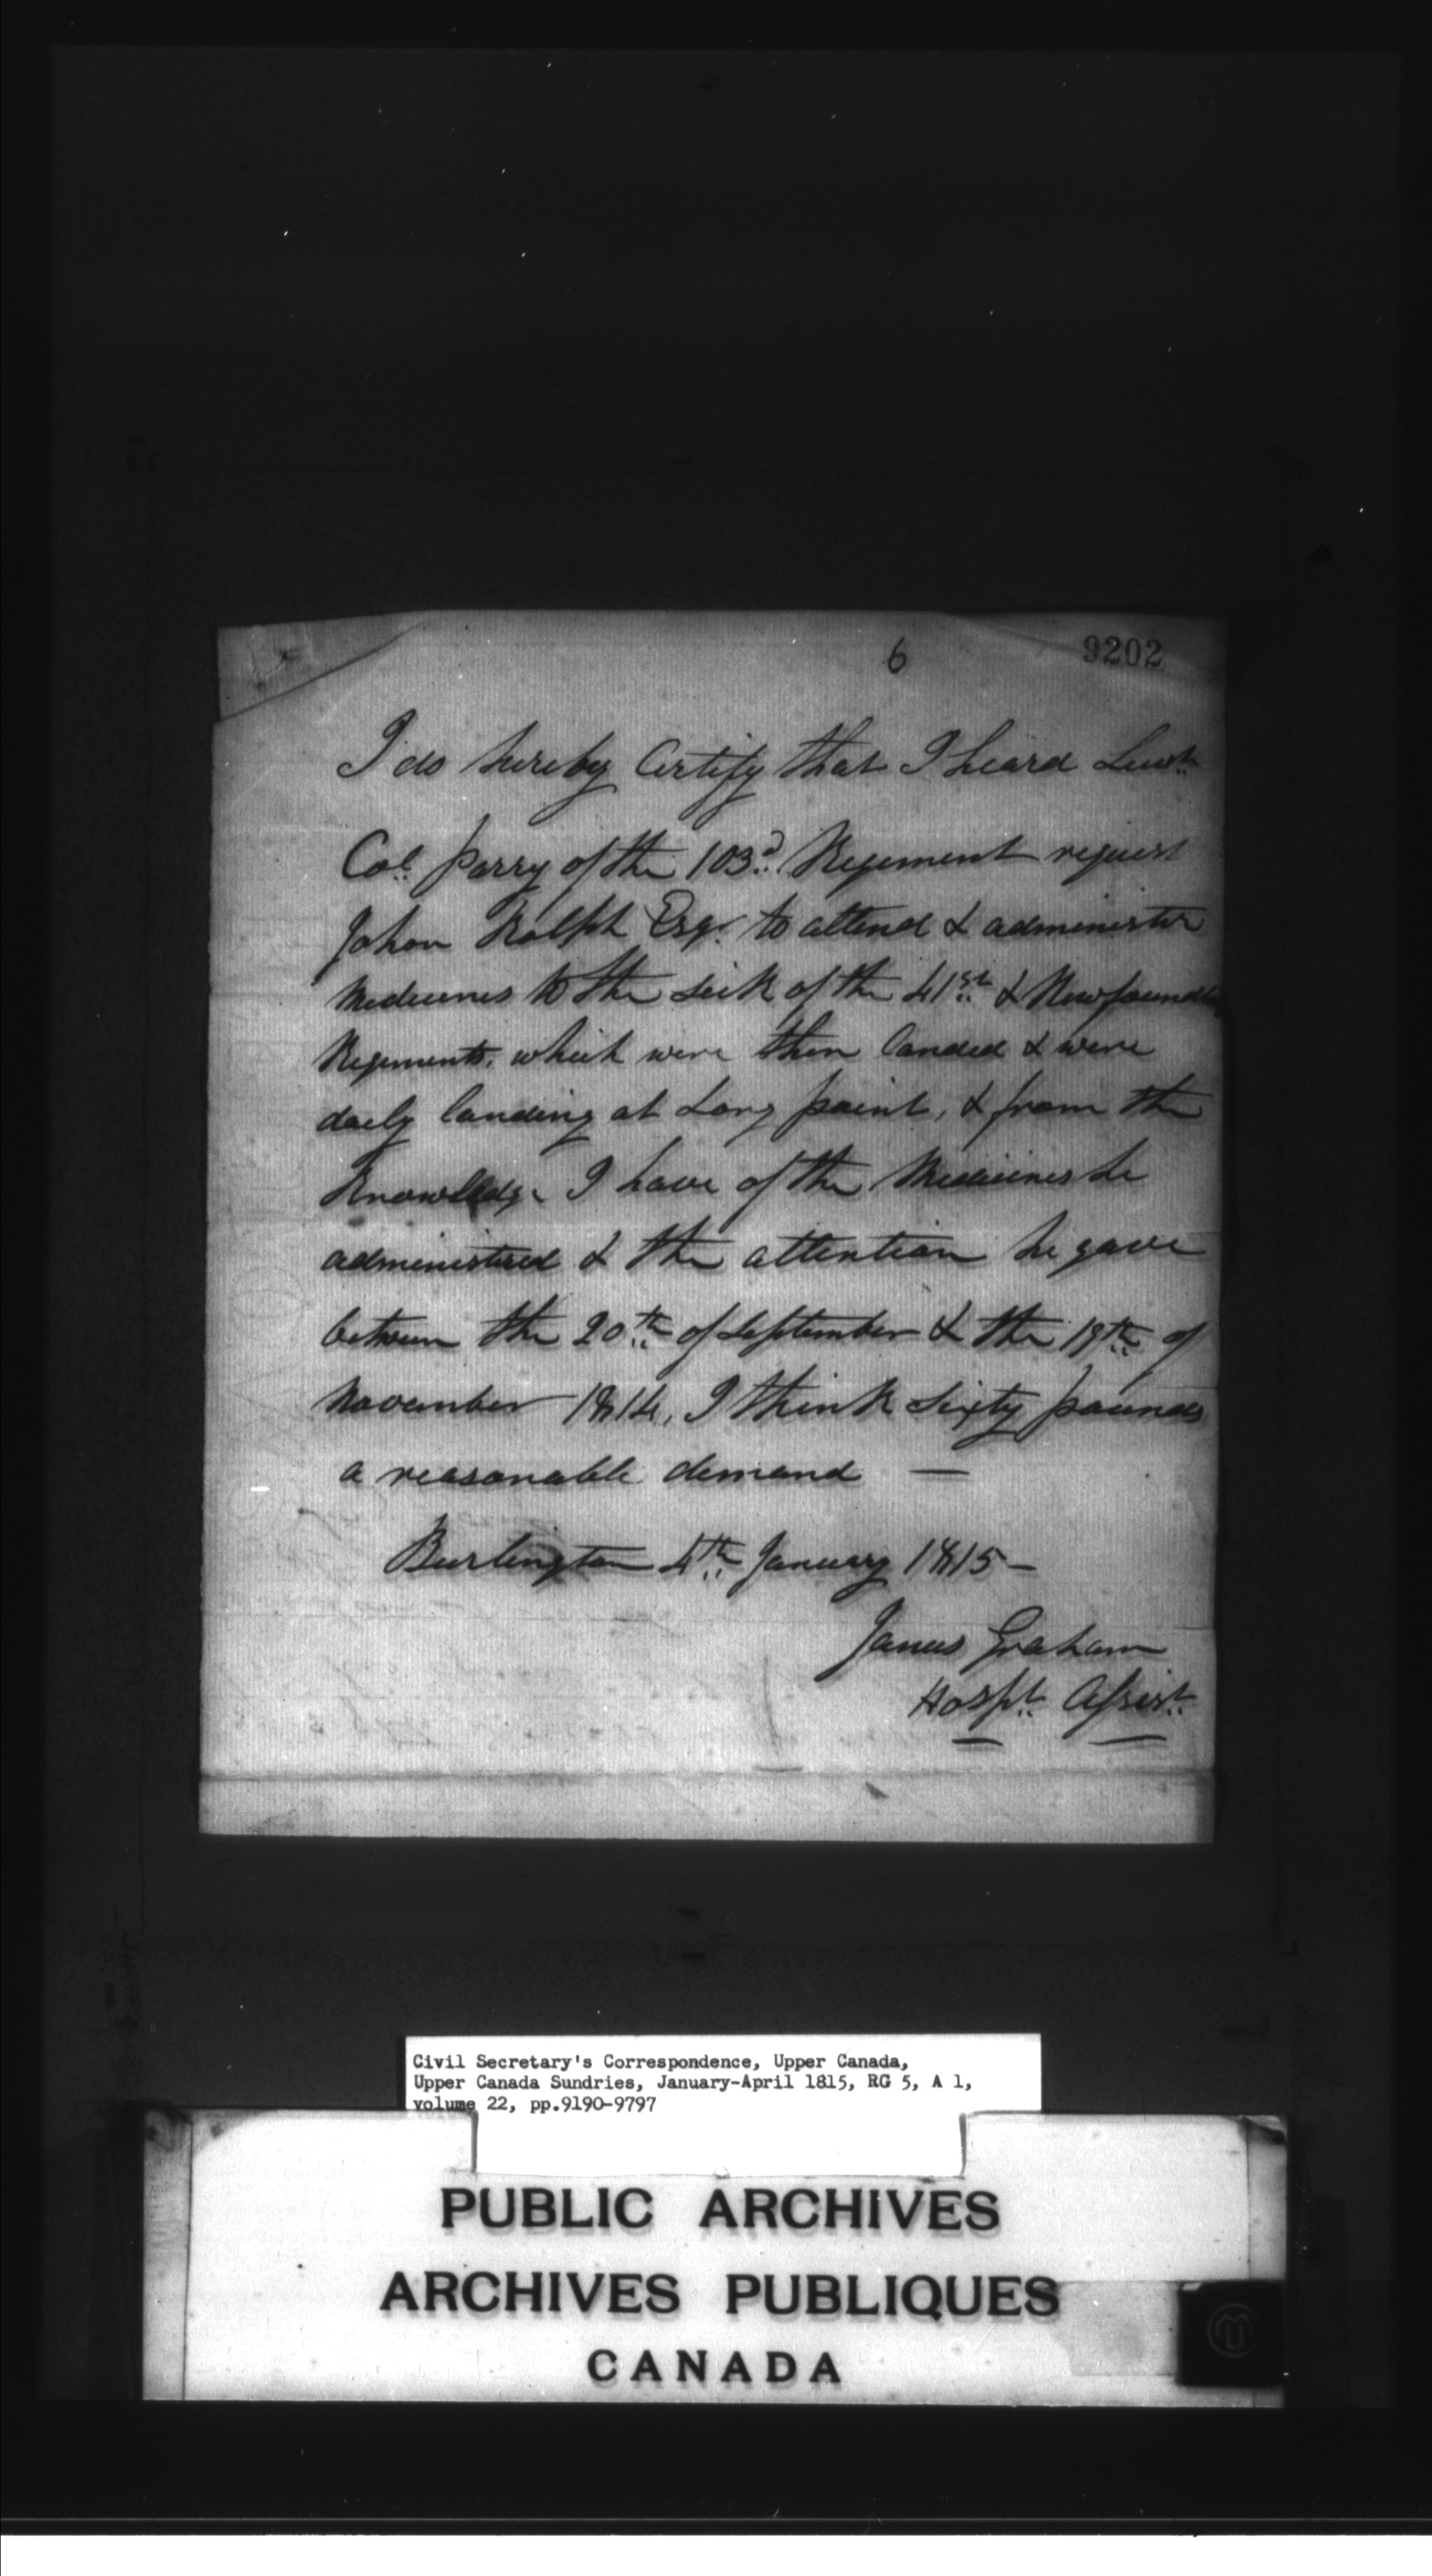 6 9202
I do hereby Certify that I heard Lieut
Col. Parry of the 103d. Regiment request
John Rolph Esqr. to attend & administer
Medicines to the sick of the 41st & Newfoundld
Regiments, which were then landed & were
daily landing at Long point, & from the
Knowledge I have of the Medicines he
administered & the attention he gave
between the 20th of September & the 19th of
November 1814, I think Sixty pounds
a reasonable demand —
Burlington 4th January 1815 —
James Graham
Hospt. Assist.
Civil Secretary's Correspondence, Upper Canada,
Upper Canada Sundries, January-April 1815, RG 5, A 1,
volume 22, pp.9190-9797
PUBLIC ARCHIVES
ARCHIVES PUBLIQUES
CANADA